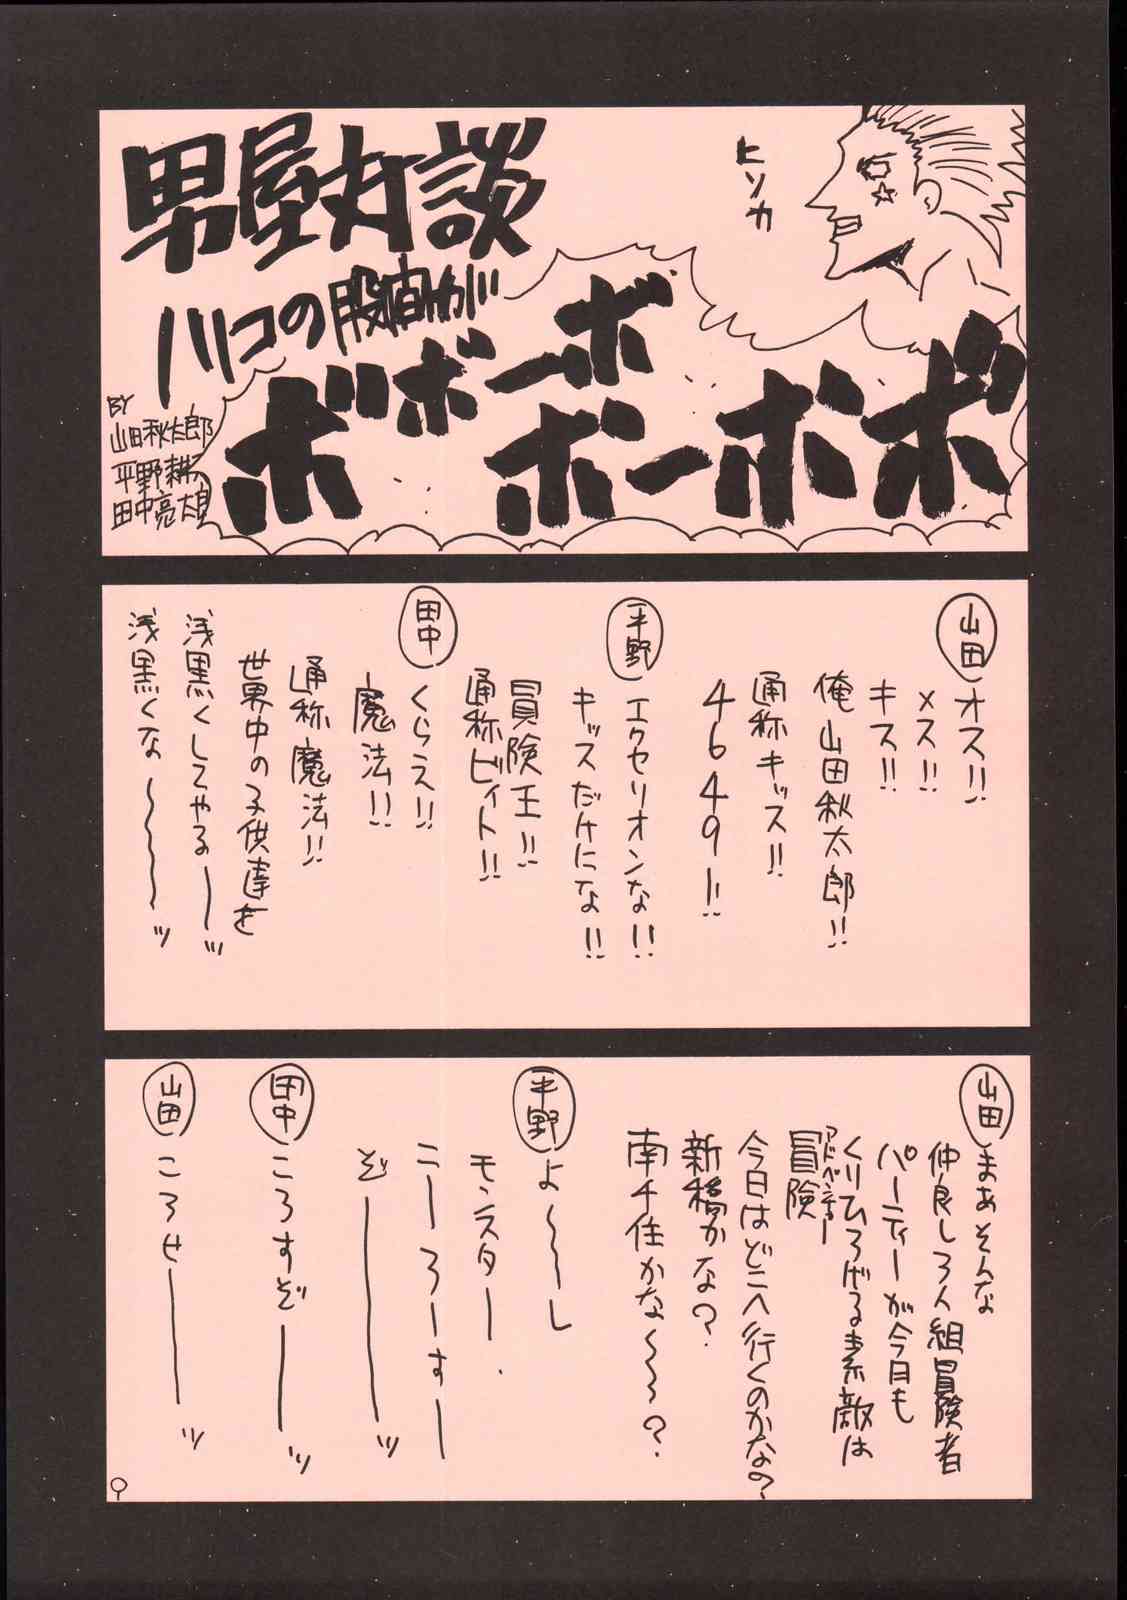 男屋対談
ハリコの股間が
ボボボーボ
ボーボボ
ヒソカ
BY
山田秋太郎
平野耕太
田中亮太良
山田
オス!!
メス!!
キス!!
俺山田秋太郎!!
通称キッス!!
4649ー!!
平野
エクセリオンな!!
キッスだけにな!!
冒険王!!
通称ビィト!!
田中
くらえ!!
魔法!!
通称魔法!!
世界中の子供達を
浅黒くしてやるーーッ
浅黒くな〜〜〜〜ッ
山田
まあそんな
仲良し3人組冒険者
パーティーが今日も
くりひろげる素敵な
アドベンチャー
冒険
今日はどこへ行くのかな?
新橋かな?
南千住かな〜〜?
平野
よ〜〜し
モンスター
こーろーすー
ぞーーーーッ
田中
ころすぞーーーッ
山田
ころせーーーーッ